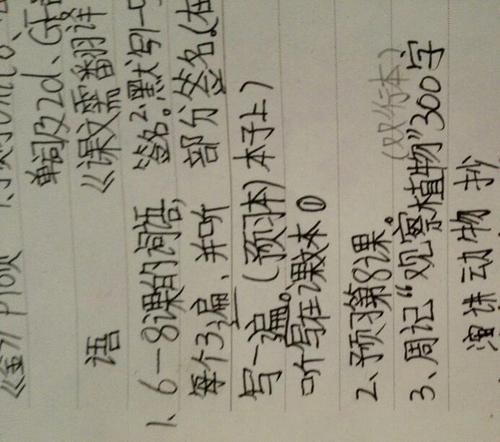 《金》P10页
单词及2d、
《课文需翻译
语
1、6—8课的词语,签名。2.默写一
每个3遍,并听部分签名(在
写一遍。(预习本)本子上)
听写在课本①
2、预习第8课。
3、周记“观察植物”300字
(双行本)
演讲 动物 抄